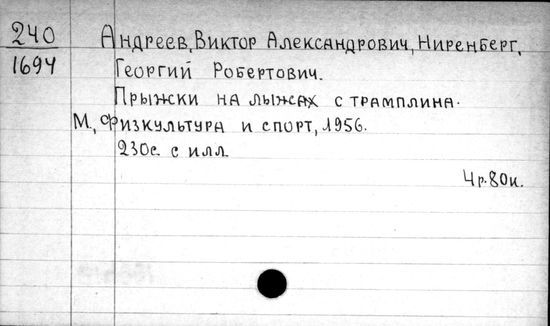 240
1694
Андреев, Виктор Александрович, Ниренберг,
Георгий Робертович.
Прыжки на лыжах с трамплина.
М., Физкультура и спорт, 1956.
230с. с илл.
4р.80к.